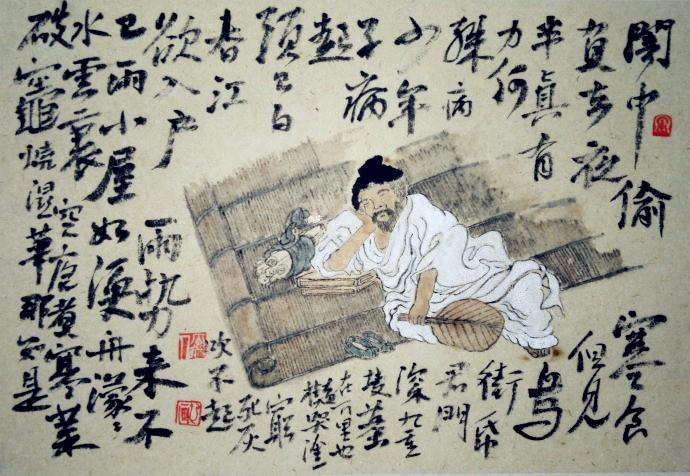 闇中偷
負去夜
半真有
力何
殊病
少年
子病
起
頭已白
春江
欲入户
雨勢來不
已雨小屋如漁舟濛〻
水雲裏空庖煮寒菜
破竈燒濕葦那知是
寒食
但見
烏
銜帋
君門
深九重
墳墓
在万里也
擬哭塗
窮
死灰
吹不起